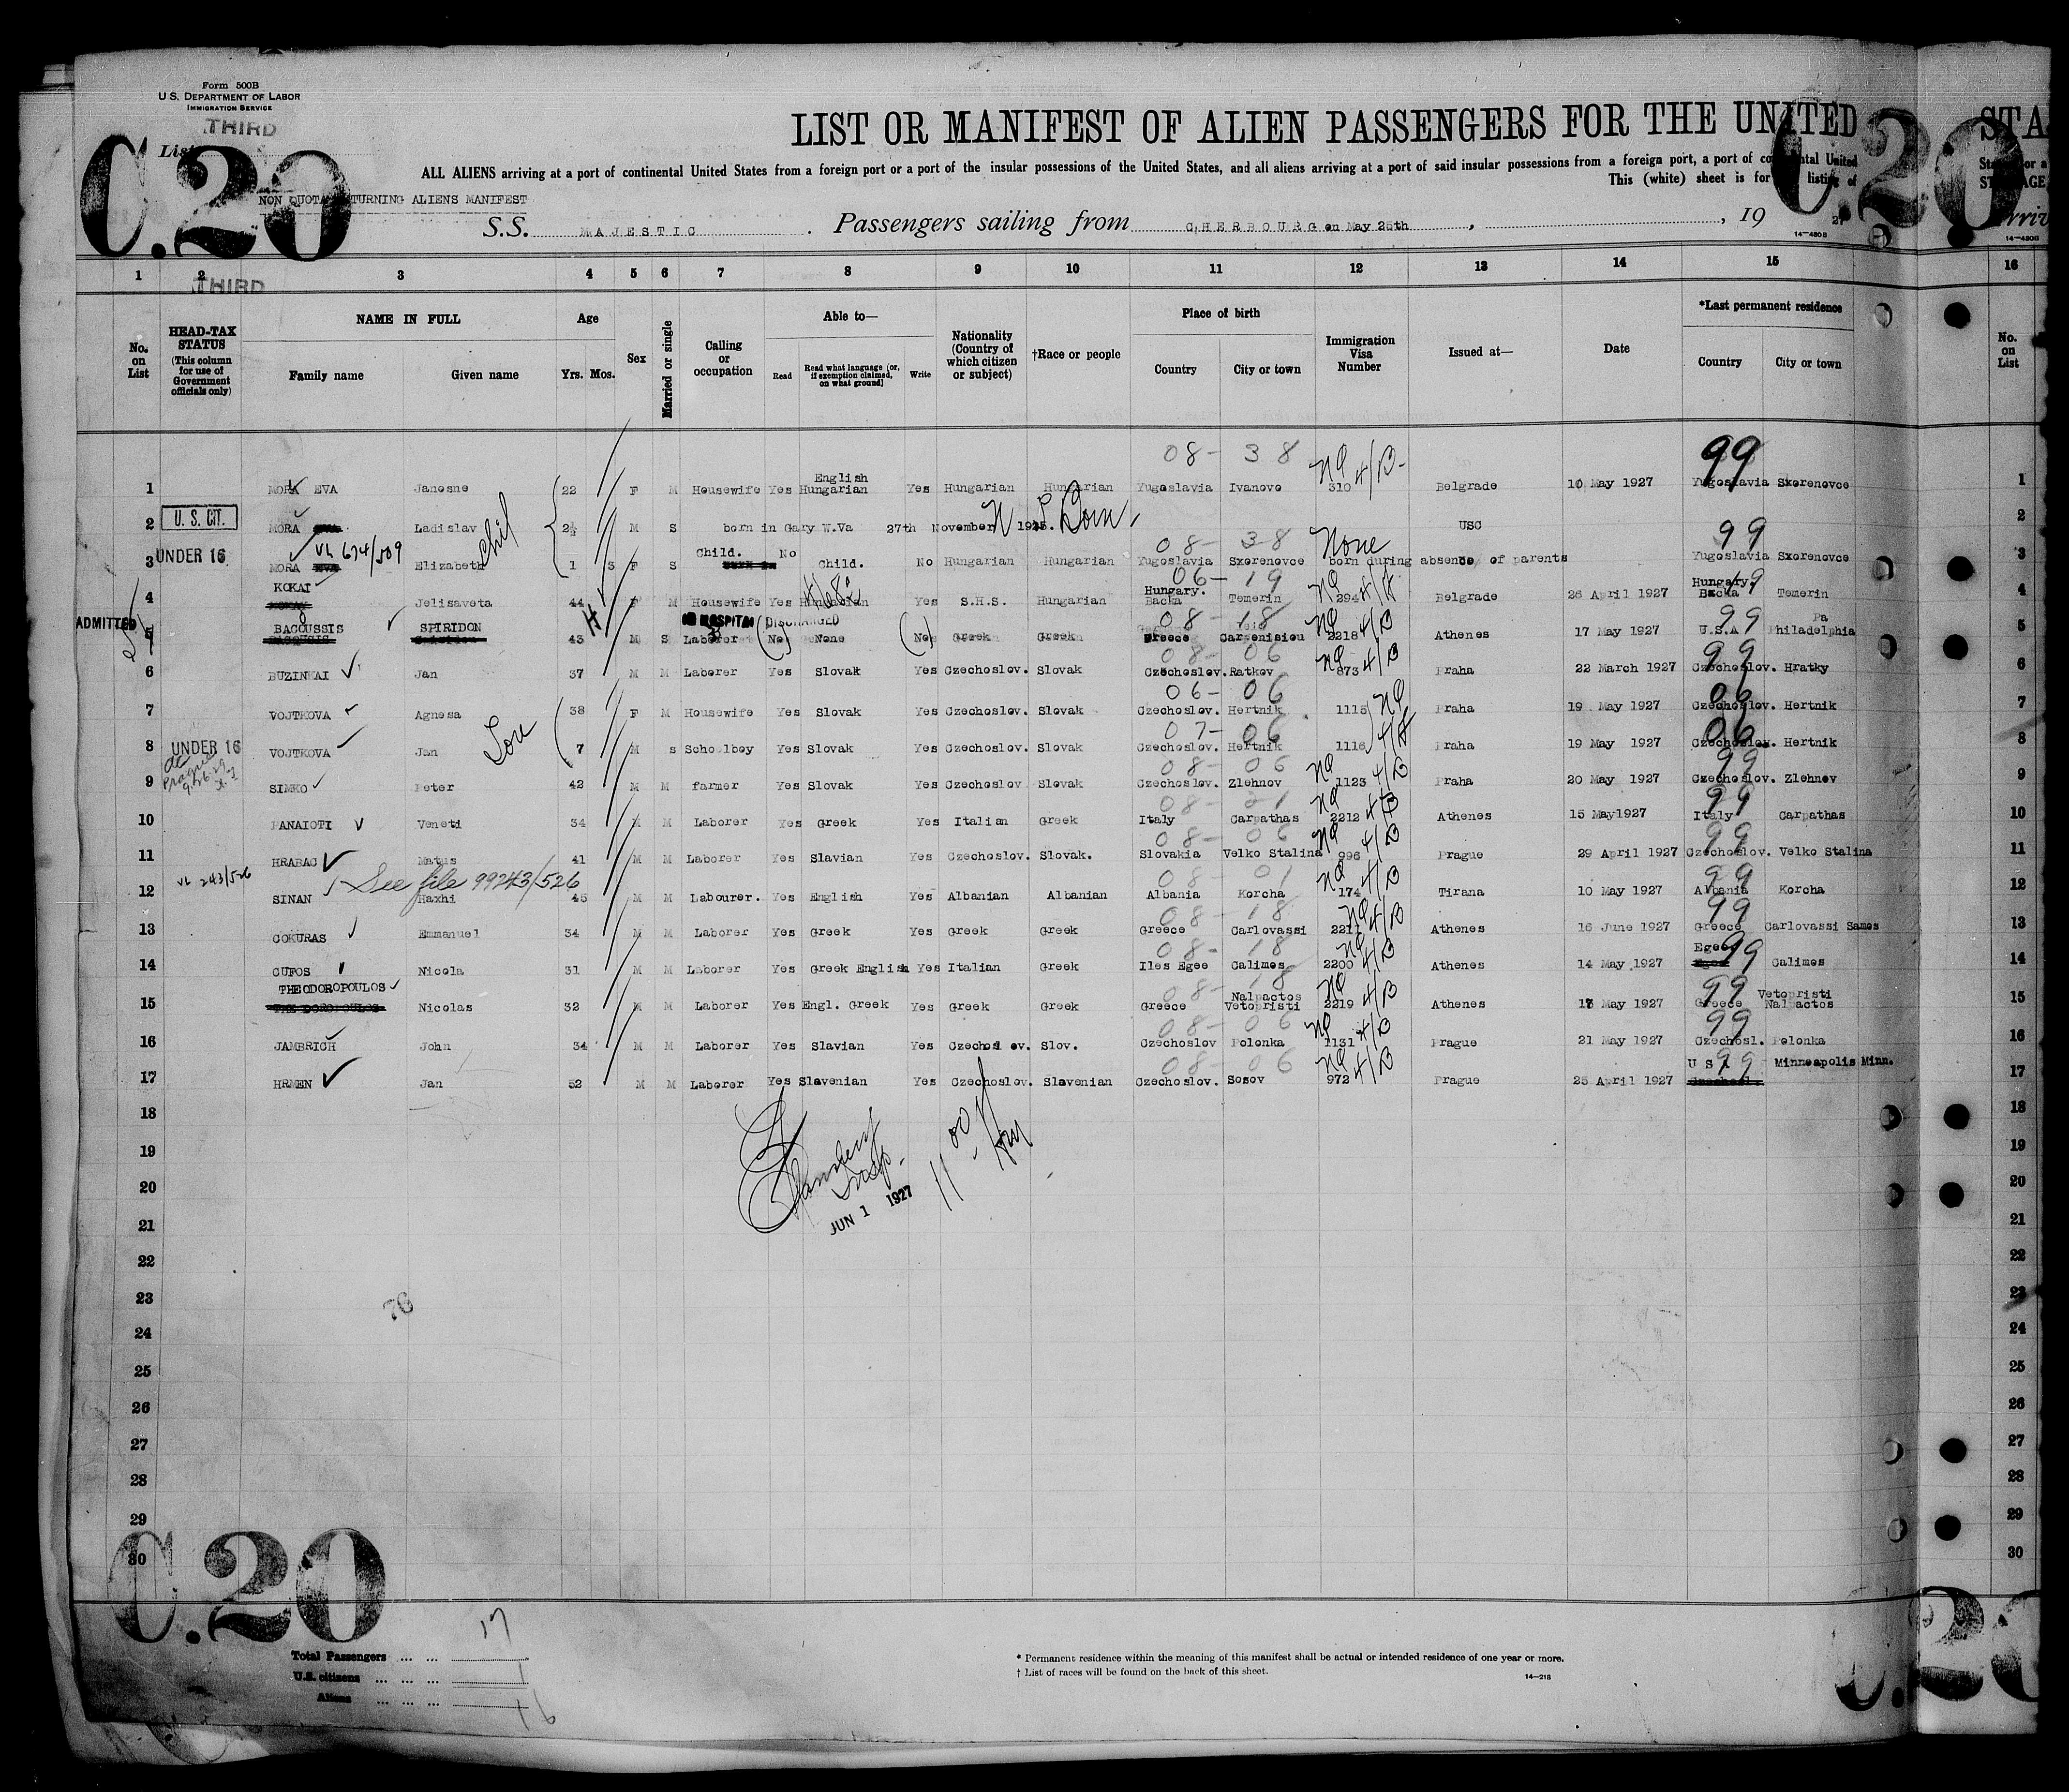 Form 500B
U.S. DEPARTMENT OF LABOR
IMMIGRATION SERVICE
THIRD
List
C.20
C.20
LIST OR MANIFEST OF ALIEN PASSENGERS FOR THE UNITED
STA
ALL ALIENS arriving at a port of continental United States from a foreign port or a port of the insular possessions of the United States, and all aliens arriving at a port of said insular possessions from a foreign port, a port of continental United
This (white) sheet is for listing of
NON QUOTA RETURNING ALIENS MANIFEST
S.S. MAJESTIC. Passengers sailing from CHERBOURG on May 25th, , 19 27
14-430B
14-430B
1 2 3 4 5 6 7 8 9 10 11 12 13 14 15 16
THIRD
No. on List
HEAD-TAX STATUS (This column for use of Government officials only)
NAME IN FULL
Family name Given name
Age
Yrs. Mos.
Sex
Married or single
Calling or occupation
Able to—
Read Read what language (or, if exemption claimed, on what ground) Write
Nationality (Country of which citizen or subject)
†Race or people
Place of birth
Country City or town
Immigration Visa Number
Issued at—
Date
*Last permanent residence
Country City or town
No. on List
08- 38 NQ 4/B- 99
1 MORA EVA Janosne 22 F M Housewife Yes English Hungarian Yes Hungarian Hungarian Yugoslavia Ivanovo 310 Belgrade 10 May 1927 Yugoslavia Sxorenovce 1
2 U. S. CIT. MORA Ladislav 2½ M S born in Gary W.Va 27th November 1925. N S Born USC 2
08- 38 None 99
3 UNDER 16 VL 674/509 MORA EVA Elizabeth 1 3 F S Child. No Child. No Hungarian Hungarian Yugoslavia Sxorenovce born during absence of parents Yugoslavia Sxorenovce 3
06- 19 NQ 4/A
4 KOKAI Jelisaveta 44 F M Housewife Yes Hungarian Yes S.H.S. Hungarian Hungary. Backa Temerin 294 Belgrade 26 April 1927 Hungary. Backa Temerin 4
ADMITTED IN HOSPITAL DISCHARGED 08- 18 NQ 4/B 99
5 BAGOUSSIS SPIRIDON 43 M S Laborer No None No Greek Greek Greece Carpenisiou 2218 Athens 17 May 1927 U.S.A Philadelphia Pa 5
08- 06 NQ 4/B 99
6 BUZINKAI Jan 37 M M Laborer Yes Slovak Yes Czechoslov. Slovak Czechoslov. Ratkov 873 Praha 22 March 1927 Czechoslov. Hratky 6
06- 06 NQ 06
7 VOJTKOVA Agnesa 38 F M Housewife Yes Slovak Yes Czechoslov. Slovak Czechoslov. Hertnik 1115 Praha 19 May 1927 Czechoslov. Hertnik 7
07- 06 4/A 06
8 UNDER 16 VOJTKOVA Jan Son 7 M S Schoolboy Yes Slovak Yes Czechoslov. Slovak Czechoslov. Hertnik 1116 Praha 19 May 1927 Czechoslov. Hertnik 8
08- 06 NQ 4/B 99
9 SIMKO Peter 42 M M farmer Yes Slovak Yes Czechoslov. Slovak Czechoslov. Zlehnov 1123 Praha 20 May 1927 Czechoslov. Zlehnov 9
08- 21 NQ 4/B 99
10 PANAIOTI Veneti 34 M M Laborer Yes Greek Yes Italian Greek Italy Carpathas 2212 Athenes 15 May1927 Italy Carpathas 10
08- 06 NQ 4/B 99
11 HRABAC Matus 41 M M Laborer Yes Slavian Yes Czechoslov. Slovak. Slovakia Velko Stalina 996 Prague 29 April 1927 Czechoslov. Velko Stalina 11
VL 243/526 See file 99243/526 08- 01 NQ 4/B 99
12 SINAN Haxhi 45 M M Labourer. Yes English Yes Albanian Albanian Albania Korcha 174 Tirana 10 May 1927 Albania Korcha 12
08- 18 NQ 4/B 99
13 COKURAS Emmanuel 34 M M Laborer Yes Greek Yes Greek Greek Greece Carlovassi 2211 Athenes 16 June 1927 Greece Carlovassi Samos 13
08- 18 NQ 4/B 99
14 CUFOS Nicola 31 M M Laborer Yes Greek English Yes Italian Greek Iles Egee Calimes 2200 Athenes 14 May 1927 Egee Calimes 14
08- 18 NQ 4/B 99
15 THEODOROPOULOS Nicolas 32 M M Laborer Yes Engl. Greek Yes Greek Greek Greece Nalpactos Vetopristi 2219 Athenes 17 May 1927 Greece Vetopristi Nalpactos 15
08- 06 NQ 4/B 99
16 JAMBRICH John 34 M M Laborer Yes Slavian Yes Czechoslov. Slov. Czechoslov Polonka 1131 Prague 21 May 1927 Czechosl. Polonka 16
08- 06 NQ 4/B 99
17 HRMEN Jan 52 M M Laborer Yes Slavenian Yes Czechoslov. Slavenian Czechoslov. Sosov 972 Prague 25 April 1927 U S A Minneapolis Minn. 17
18 18
19 Insp. 19
20 JUN 1 1927 20
21 21
22 22
23 76 23
24 24
25 25
26 26
27 27
28 28
29 29
30 30
C.20
Total Passengers ... ... 17
U.S. citizens ... ... ... 1
Aliens ... ... ... 16
* Permanent residence within the meaning of this manifest shall be actual or intended residence of one year or more.
† List of races will be found on the back of this sheet.
14-218
C.20